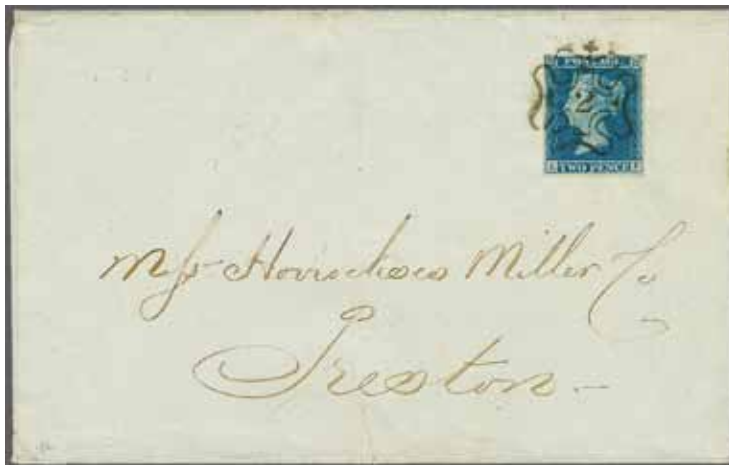 POSTAGE
2
TWO PENCE
Messrs Horrockses Miller Co
Preston